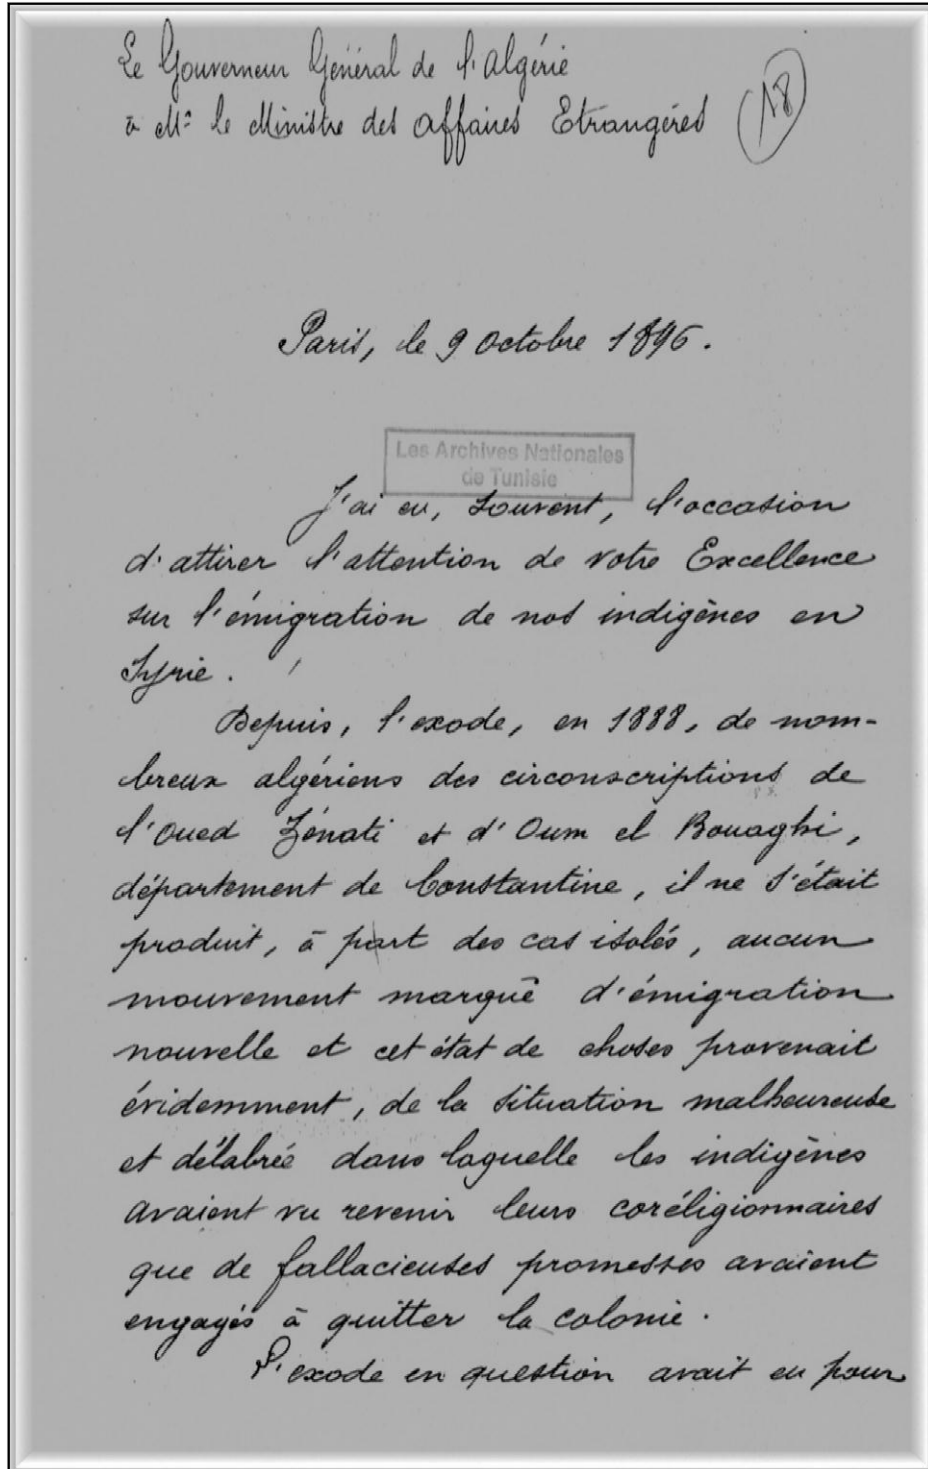 Le Gouverneur Général de l'Algérie
à Mr le Ministre des Affaires Etrangères
18
Paris, le 9 Octobre 1896.
Les Archives Nationales
de Tunisie
J'ai eu, souvent, l'occasion
d'attirer l'attention de Votre Excellence
sur l'émigration de nos indigènes en
Syrie.
Depuis, l'exode, en 1888, de nom-
breux algériens des circonscriptions de
l'Oued Zénati et d'Oum el Bouaghi,
département de Constantine, il ne s'était
produit, à part des cas isolés, aucun
mouvement marqué d'émigration
nouvelle et cet état de choses provenait
évidemment, de la situation malheureuse
et délabrée dans laquelle les indigènes
avaient vu revenir leurs coréligionnaires
que de fallacieuses promesses avaient
engagés à quitter la colonie.
L'exode en question avait eu pour